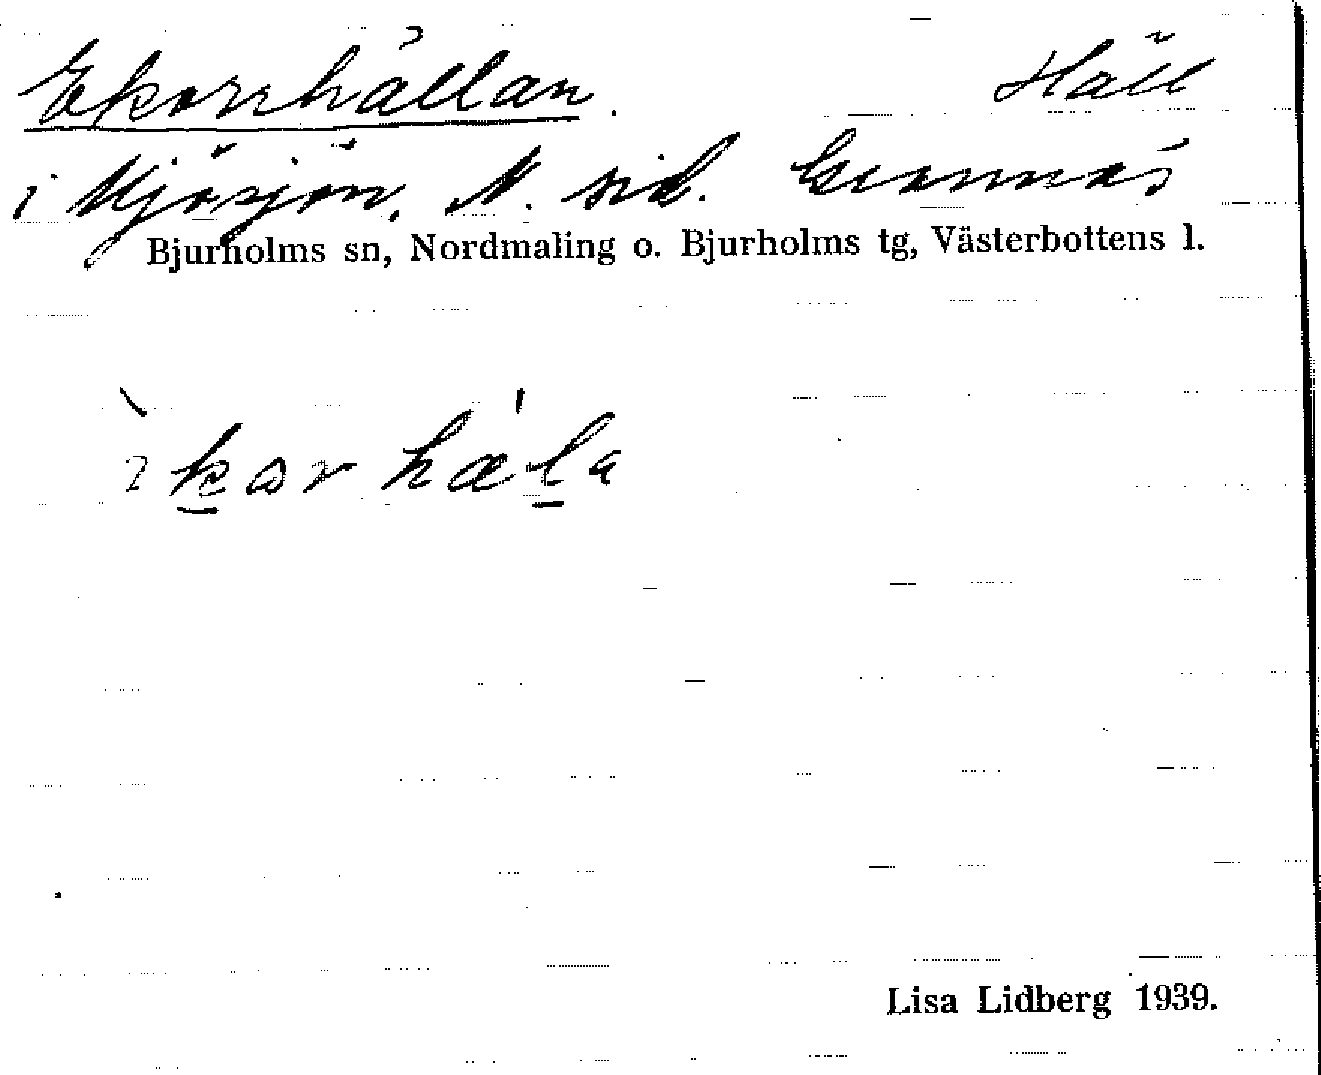 Ekorrhällan. Häll
i Mjösjön, N. sid.
Bjurholms sn, Nordmaling o. Bjurholms tg, Västerbottens l.
Lisa Lidberg 1939.